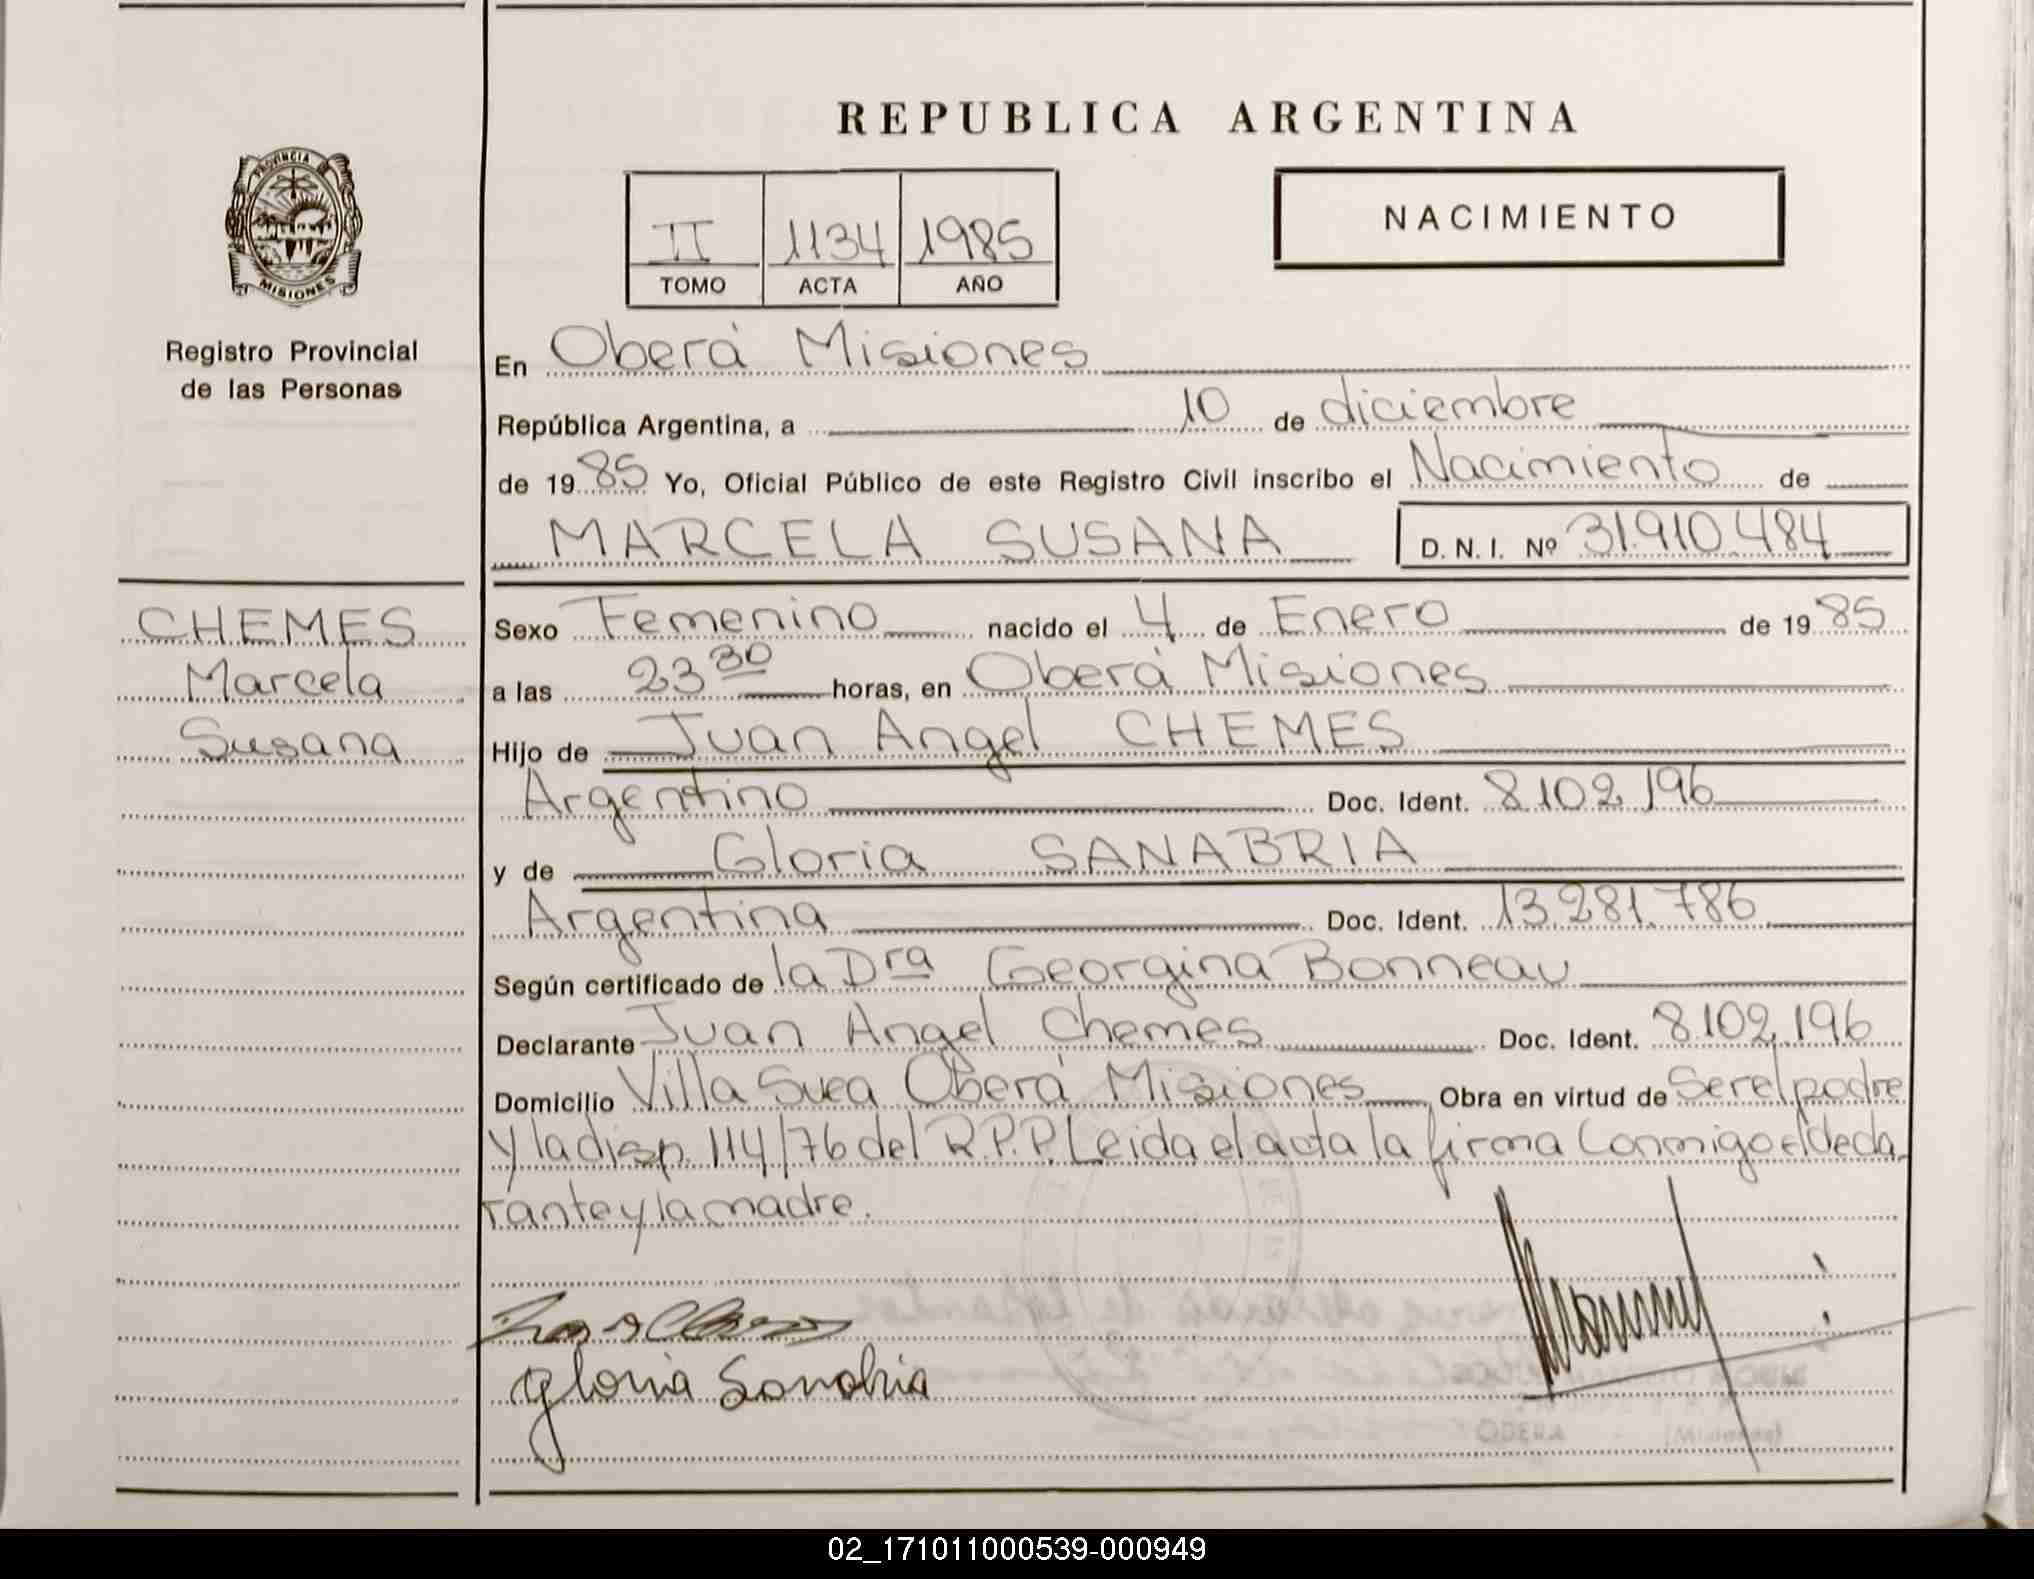 REPUBLICA ARGENTINA
PROVINCIA
MISIONES
Registro Provincial
de las Personas
II 1134 1985
TOMO ACTA AÑO
NACIMIENTO
En Oberá Misiones
República Argentina, a 10 de diciembre
de 1985 Yo, Oficial Público de este Registro Civil inscribo el Nacimiento de
MARCELA SUSANA D. N. I. Nº 31.910.484
CHEMES
Marcela
Susana
Sexo Femenino nacido el 4 de Enero de 1985
a las 23 30 horas, en Oberá Misiones
Hijo de Juan Angel CHEMES
Argentino Doc. Ident. 8.102.196
y de Gloria SANABRIA
Argentina Doc. Ident. 13.281.786
Según certificado de la Dra Georgina Bonneau
Declarante Juan Angel Chemes Doc. Ident. 8.102.196
Domicilio Villa Svea Oberá Misiones Obra en virtud de Ser el padre
y la disp. 114/76 del R.P.P. Leida el acta la firma Conmigo el decla
rante y la madre.
Gloria Sanabria
02_171011000539-000949